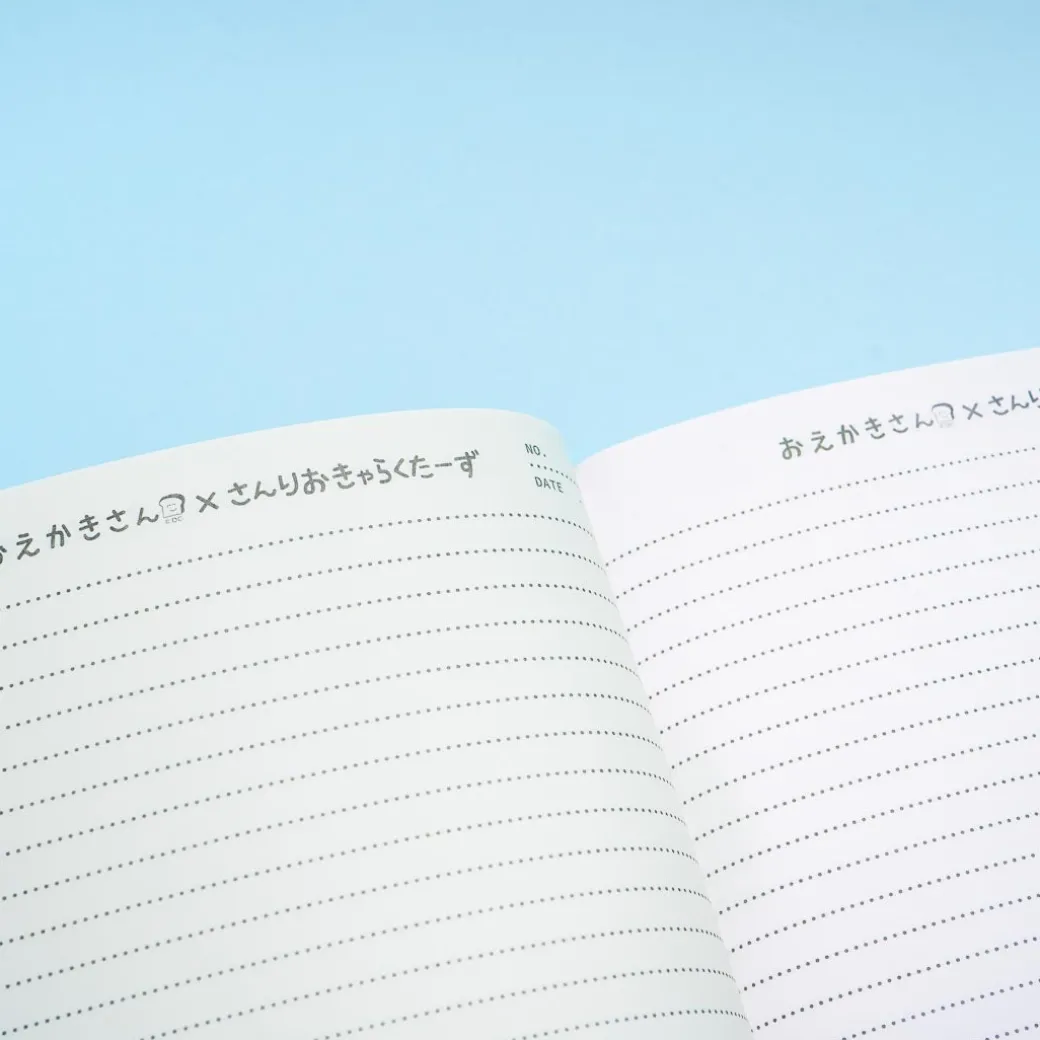 おえかきさん × さんりおきゃらくたーず
NO.
DATE
おえかきさん × さんり